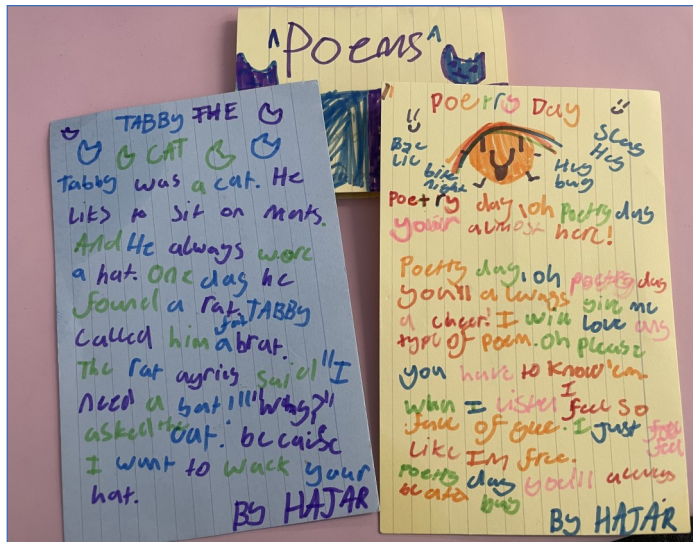 Poems
TABBY THE
CAT
Tabby was a cat. He
Liks to sit on mats.
And He always wore
a hat. One day he
found a rat. TABBY
called him a fat brat.
The rat agrily said "I
need a bat!!!" "Why?"
asked the cat. because
I want to wack your
hat.
BY HAJAR
Poetry Day
Bye
Lie
bite
night
Slug
Hug
Hug
bug
Poetry day, oh Poetry day
your almost here!
Poetry day, oh poetry day
you'll always give me
a cheer! I will love any
type of Poem. oh please
you have to know 'em.
when I listen I feel so
full of glee. I just feel
Like Im free.
Poetry day you'll always
be ata buy
By HAJAR